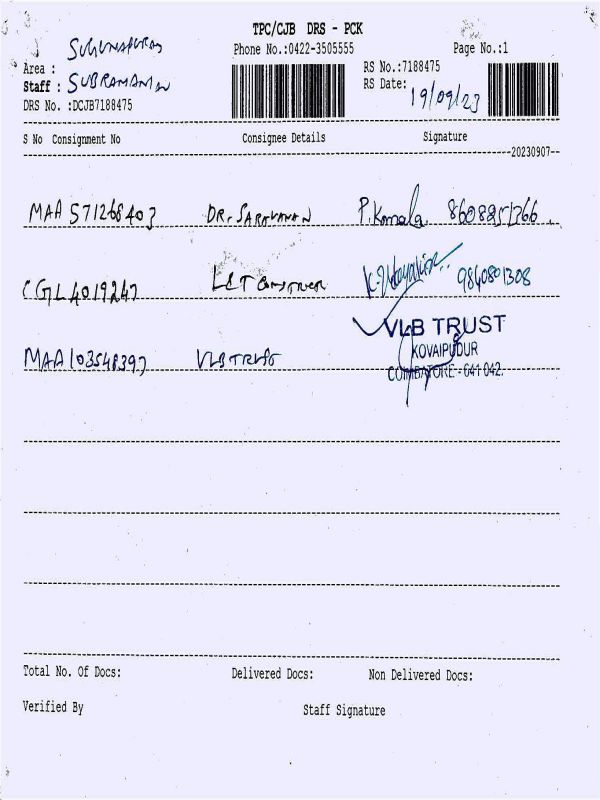 TPC/CJB DRS - PCK
Phone No.:0422-3505555
Page No.:1
Area :
Staff : SUBRAMANIAN
DRS No. :DCJB7188475
RS No.:7188475
RS Date: 19/09/23
S No Consignment No Consignee Details Signature
20230907
MAA 571268403 DR. SARAVANAN P. Kamala 8608251366
CGL4019247 L&T 9840801308
MAA103548397 VLB TRUST
VLB TRUST
KOVAIPUDUR
COIMBATORE - 641 042.
Total No. Of Docs: Delivered Docs: Non Delivered Docs:
Verified By Staff Signature